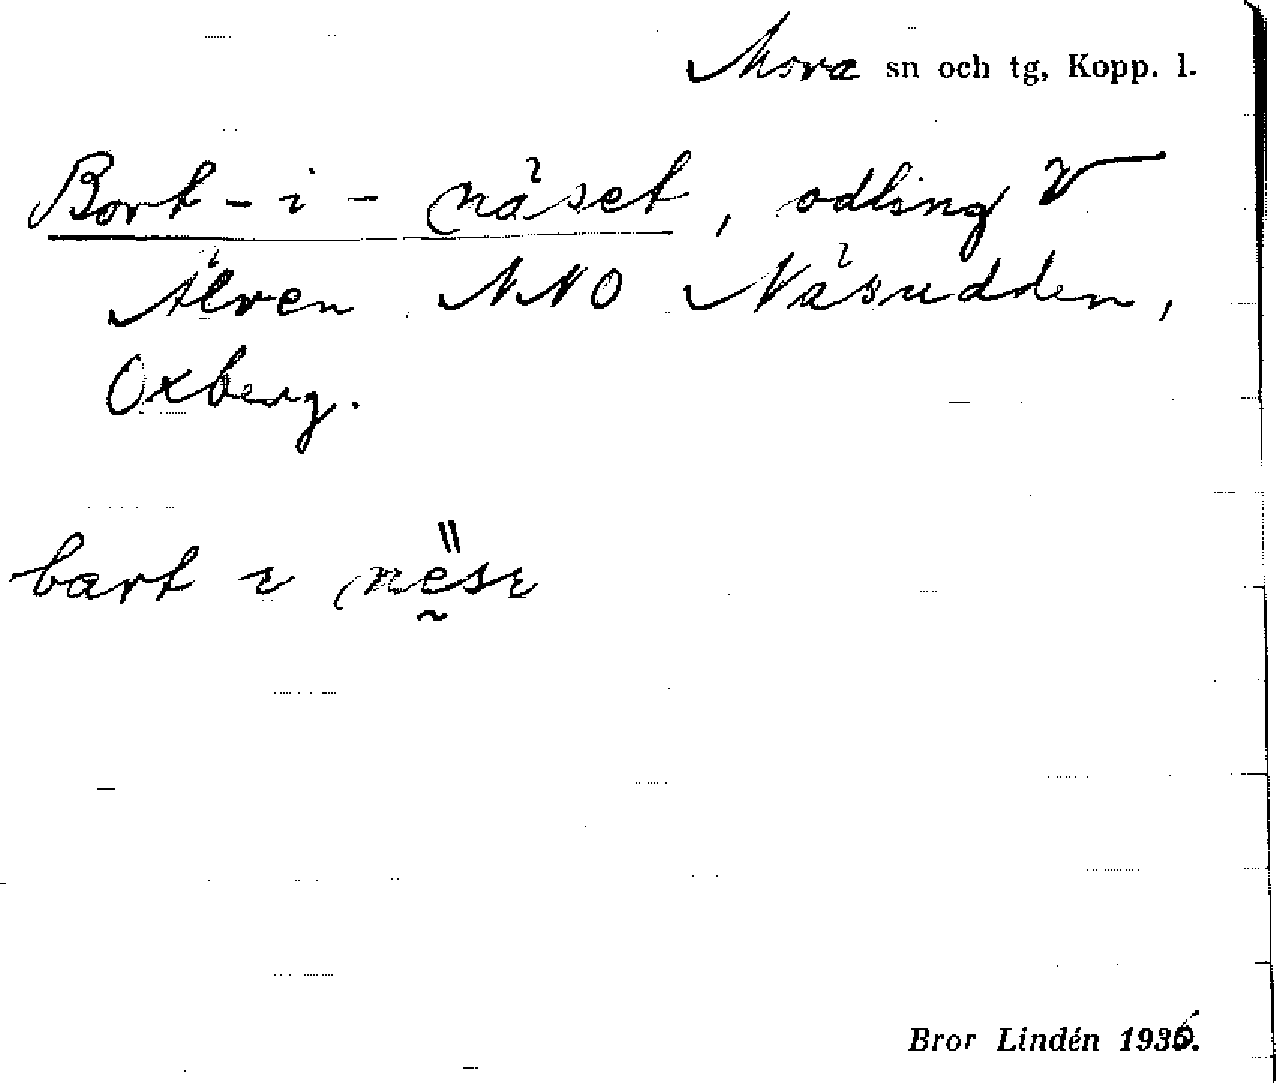 Mora sn och tg, Kopp. l.
Bort-i-näset, odling V
Älven NNO Näsudden,
Oxberg.
bart ı nësı
Bror Lindén 1936.